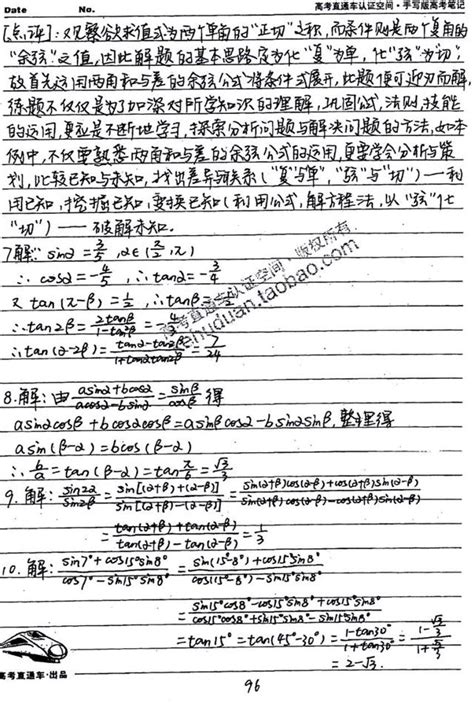 Date No. 高考直通车认证空间·手写版高考笔记
[点评]:观察欲求值式为两个单角的"正切"之积,而条件则是两个复角的
"余弦"之值,因此解题的基本思路定为化"复"为单,化"弦"为切,
故首先运用两角和与差的余弦公式将条件式展开,此题便可迎刃而解,
练题不仅仅是为了加深对所学知识的理解,巩固公式,法则,技能
的运用,更应是不断地学习,探索分析问题与解决问题的方法,如本
例中,不仅要熟悉两角和与差的余弦公式的运用,更要学会分析与策
划,比较已知与未知,找出差异与联系("复与单","弦"与"切")——利
用已知,挖掘已知,变换已知(利用公式,解方程法,以"弦"化
"切")——破解未知.
7解: sinα=3/5, α∈(π/2,π)
∴ cosα=-4/5, ∴tanα=-3/4
又 tan(π-β)=1/2, ∴tanβ=-1/2
∴tan2β=2tanβ/(1-tan²β)=-4/3
∴tan(α-2β)=(tanα-tan2β)/(1+tanαtan2β)=7/24
8.解:由(asinα+bcosα)/(acosα-bsinα)=sinβ/cosβ 得
asinαcosβ+bcosαcosβ=asinβcosα-bsinαsinβ,整理得
asin(β-α)=bcos(β-α)
∴b/a=tan(β-α)=tanπ/6=√3/3
9.解:sin2α/sin2β=sin[(α+β)+(α-β)]/sin[(α+β)-(α-β)]=(sin(α+β)cos(α-β)+cos(α+β)sin(α-β))/(sin(α+β)cos(α-β)-cos(α+β)sin(α-β))
=(tan(α+β)+tan(α-β))/(tan(α+β)-tan(α-β))=1/3
10.解:(sin7°+cos15°sin8°)/(cos7°-sin15°sin8°)=(sin(15°-8°)+cos15°sin8°)/(cos(15°-8°)-sin15°sin8°)
=(sin15°cos8°-cos15°sin8°+cos15°sin8°)/(cos15°cos8°+sin15°sin8°-sin15°sin8°)
=tan15°=tan(45°-30°)=(1-tan30°)/(1+tan30°)=(1-√3/3)/(1+√3/3)
=2-√3.
高考直通车·出品
96
高考直通车认证空间,版权所有
taobao.com